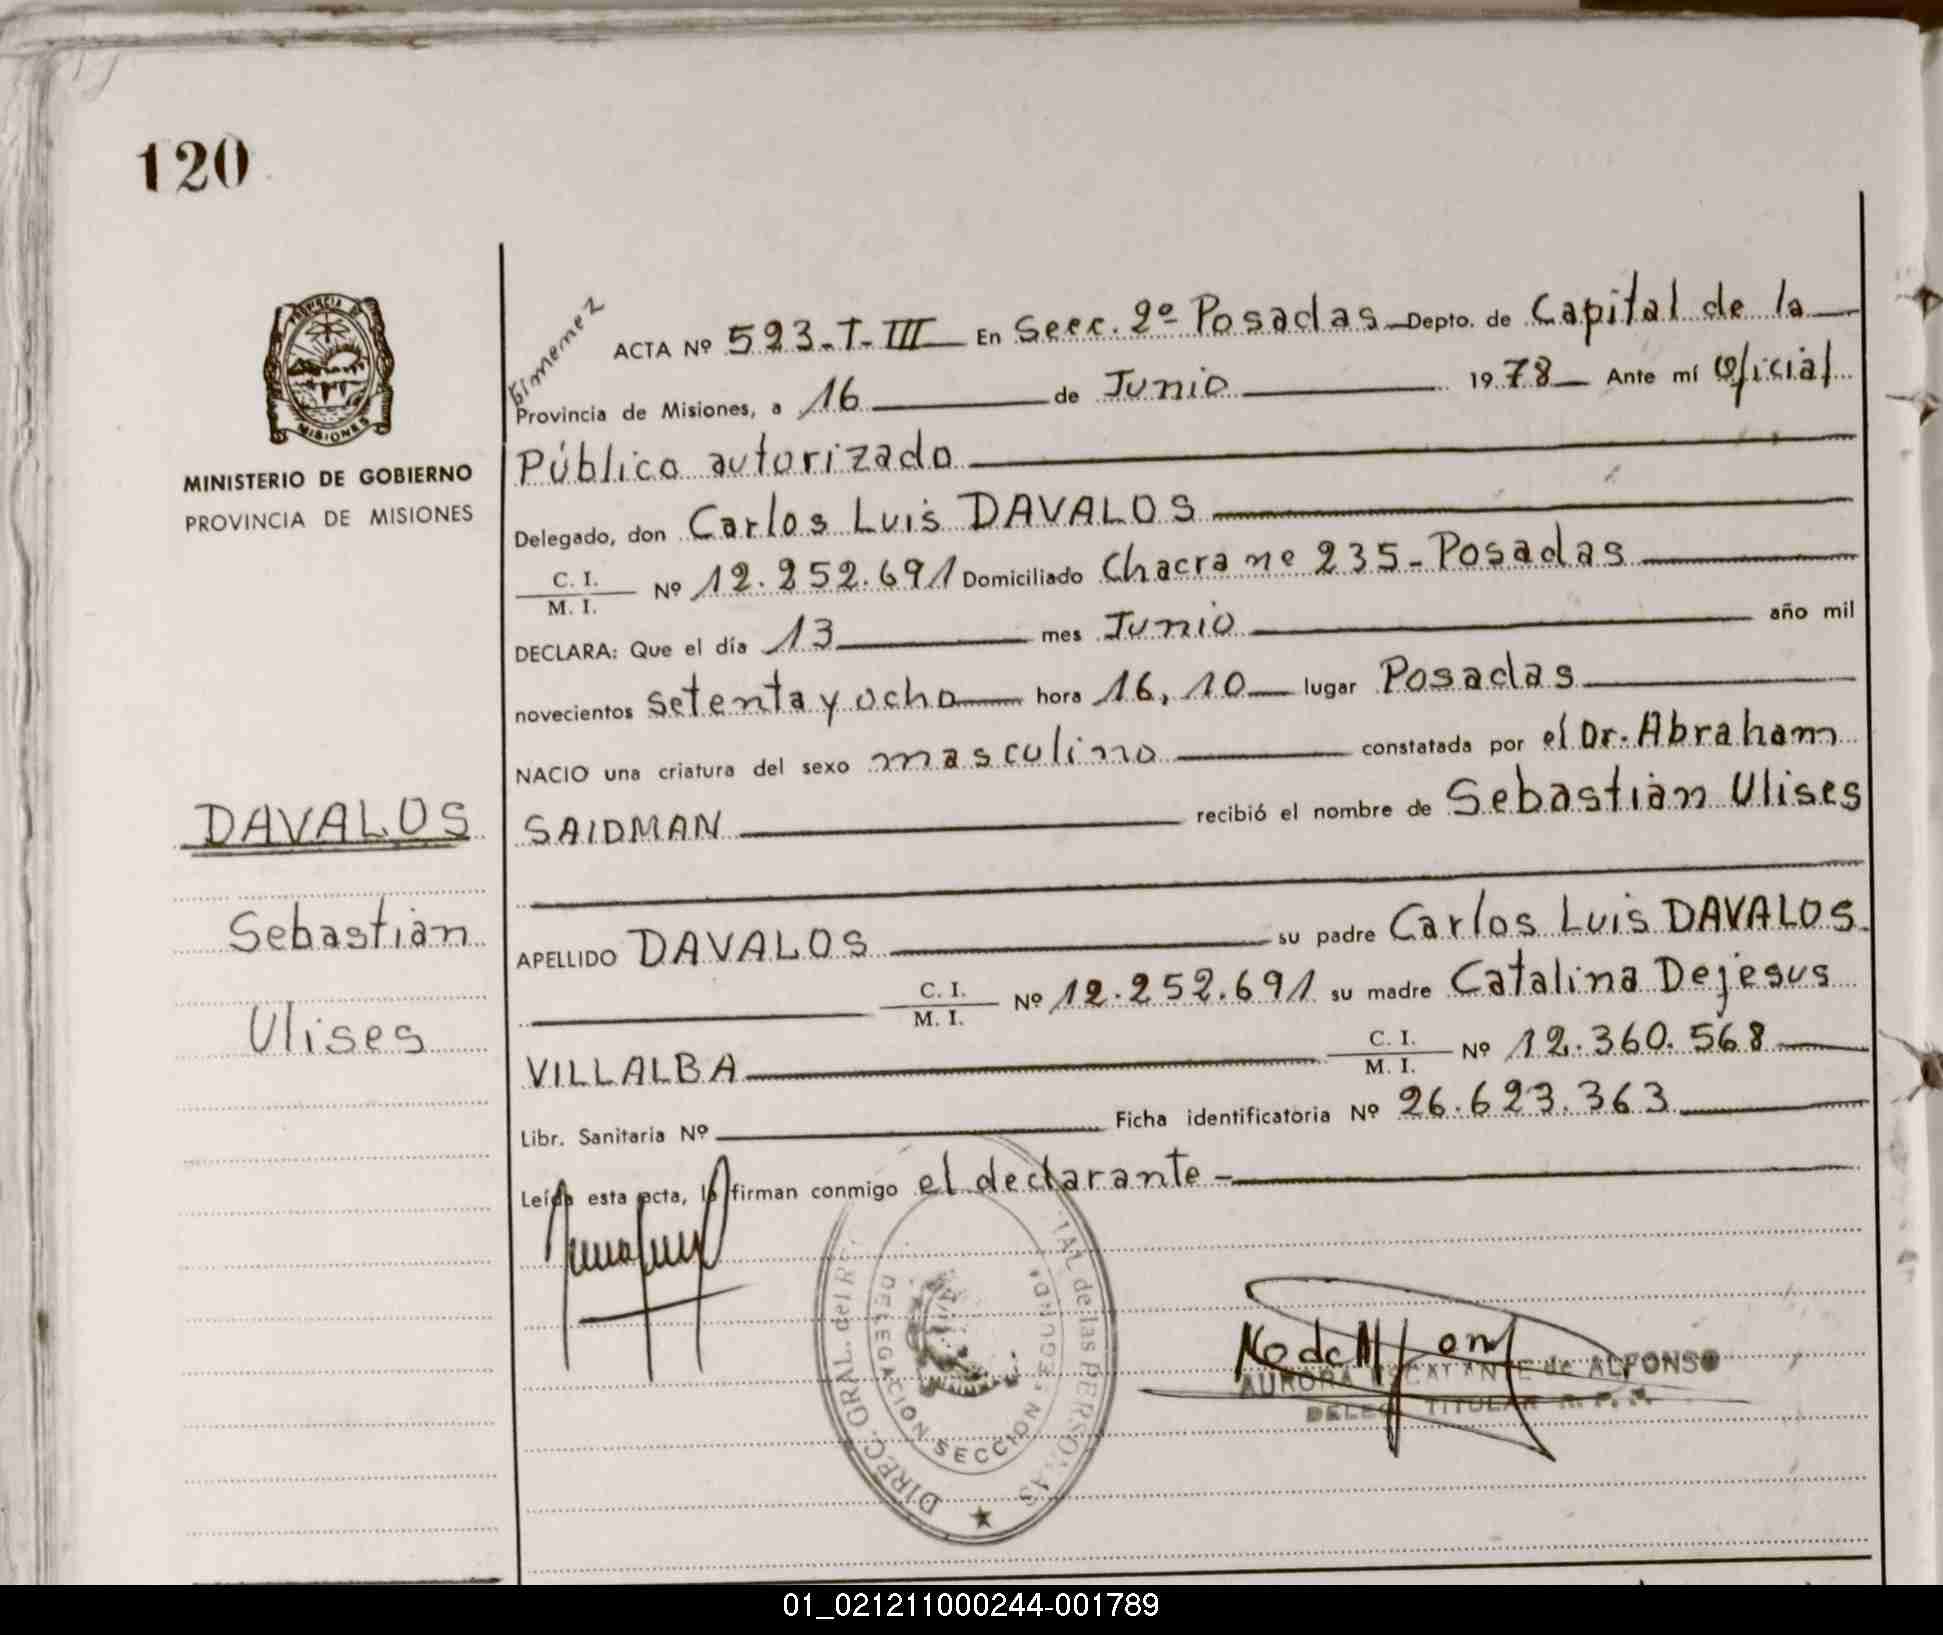 120
Gimenez
PROVINCIA DE
MISIONES
MINISTERIO DE GOBIERNO
PROVINCIA DE MISIONES
ACTA Nº 593-T-III En Secc. 2º Posadas Depto. de Capital de la
Provincia de Misiones, a 16 de Junio 1978 Ante mí Oficial
Público autorizado
Delegado, don Carlos Luis DAVALOS
C. I.
M. I. Nº 12.252.691 Domiciliado Chacra nº 235-Posadas
DECLARA: Que el día 13 mes Junio año mil
novecientos setenta y ocho hora 16,10 lugar Posadas
NACIO una criatura del sexo masculino constatada por el Dr. Abraham
SAIDMAN recibió el nombre de Sebastián Ulises
APELLIDO DAVALOS su padre Carlos Luis DAVALOS
C. I.
M. I. Nº 12.252.691 su madre Catalina Dejesus
VILLALBA C. I.
M. I. Nº 12.360.568
Libr. Sanitaria Nº Ficha identificatoria Nº 26.623.363
Leída esta acta, la firman conmigo el declarante -
DAVALOS
Sebastián
Ulises
DIREC. GRAL. del R  de las PERSONAS
DELEGACION SECCION SEGUNDA
AURORA ESCALANTE de ALFONSO
DELEG. TITULAR R. P. P.
01_021211000244-001789